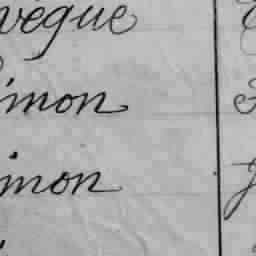 vègue
imon
imon